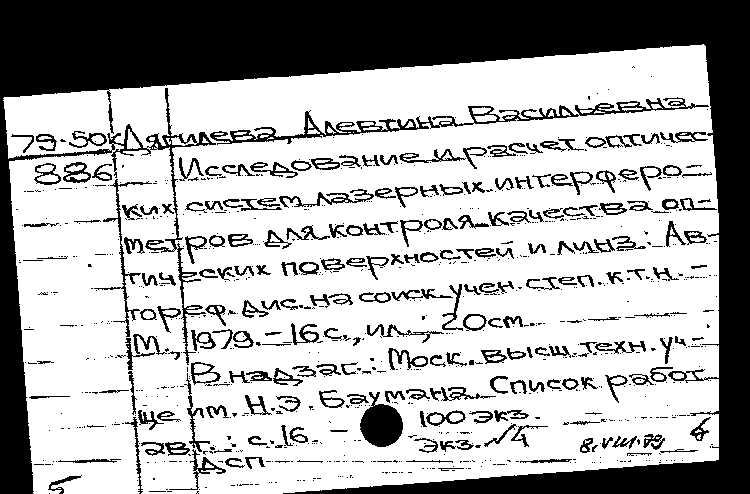 79-50к Лягилева, Алевтина Васильевна.
886 Исследование и расчет оптичес-
ких систем лазерных интерферо-
метров для контроля качества оп-
тических поверхностей и линз: Ав-
тореф. дис. на соиск учен. степ. к.т.н. -
М., 1979. - 16 с., ил.; 20 см.
В надзаг.: Моск. высш техн. уч-
ще им. Н.Э. Баумана. Список работ
авт.: с. 16. - 100 экз.
ДСП экз. √4 8.VIII.79 б
5